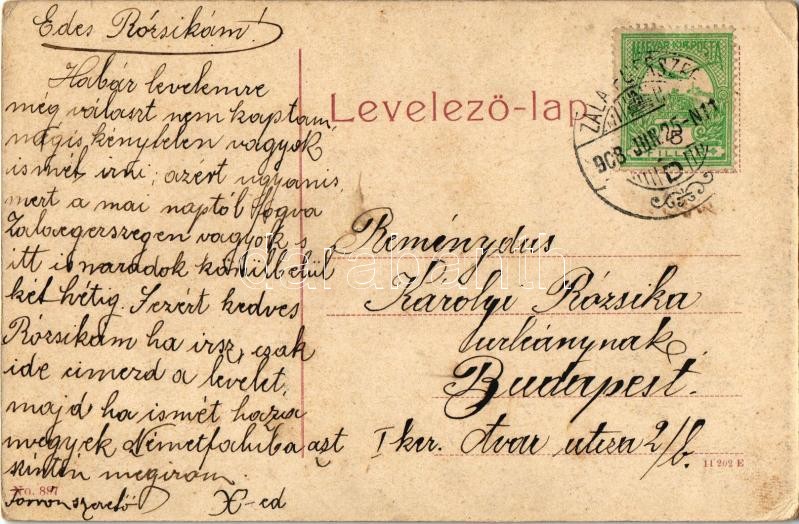 Edes Rózsikám!
Habár levelemre
még választ nem kaptam,
mégis kénytelen vagyok
ismét irni; azért ugyanis,
mert a mai naptól fogva
Zalaegerszegen vagyok s
itt is maradok körülbelül
két hétig. S ezért kedves
Rózsikám ha irsz, csak
ide cimezd a levelet,
majd ha ismét haza
megyek Németfaluba azt
szintén megirom.
szerető X-ed
No. 887
Levelező-lap
MAGYAR KIR. POSTA
ZALAEGERSZEG
908 JUN. 25 - N11
D
Reménydus
Károlyi Rózsika
urleánynak
Budapest.
I ker. Avar utcza 2/b.
11202 E
darabanth